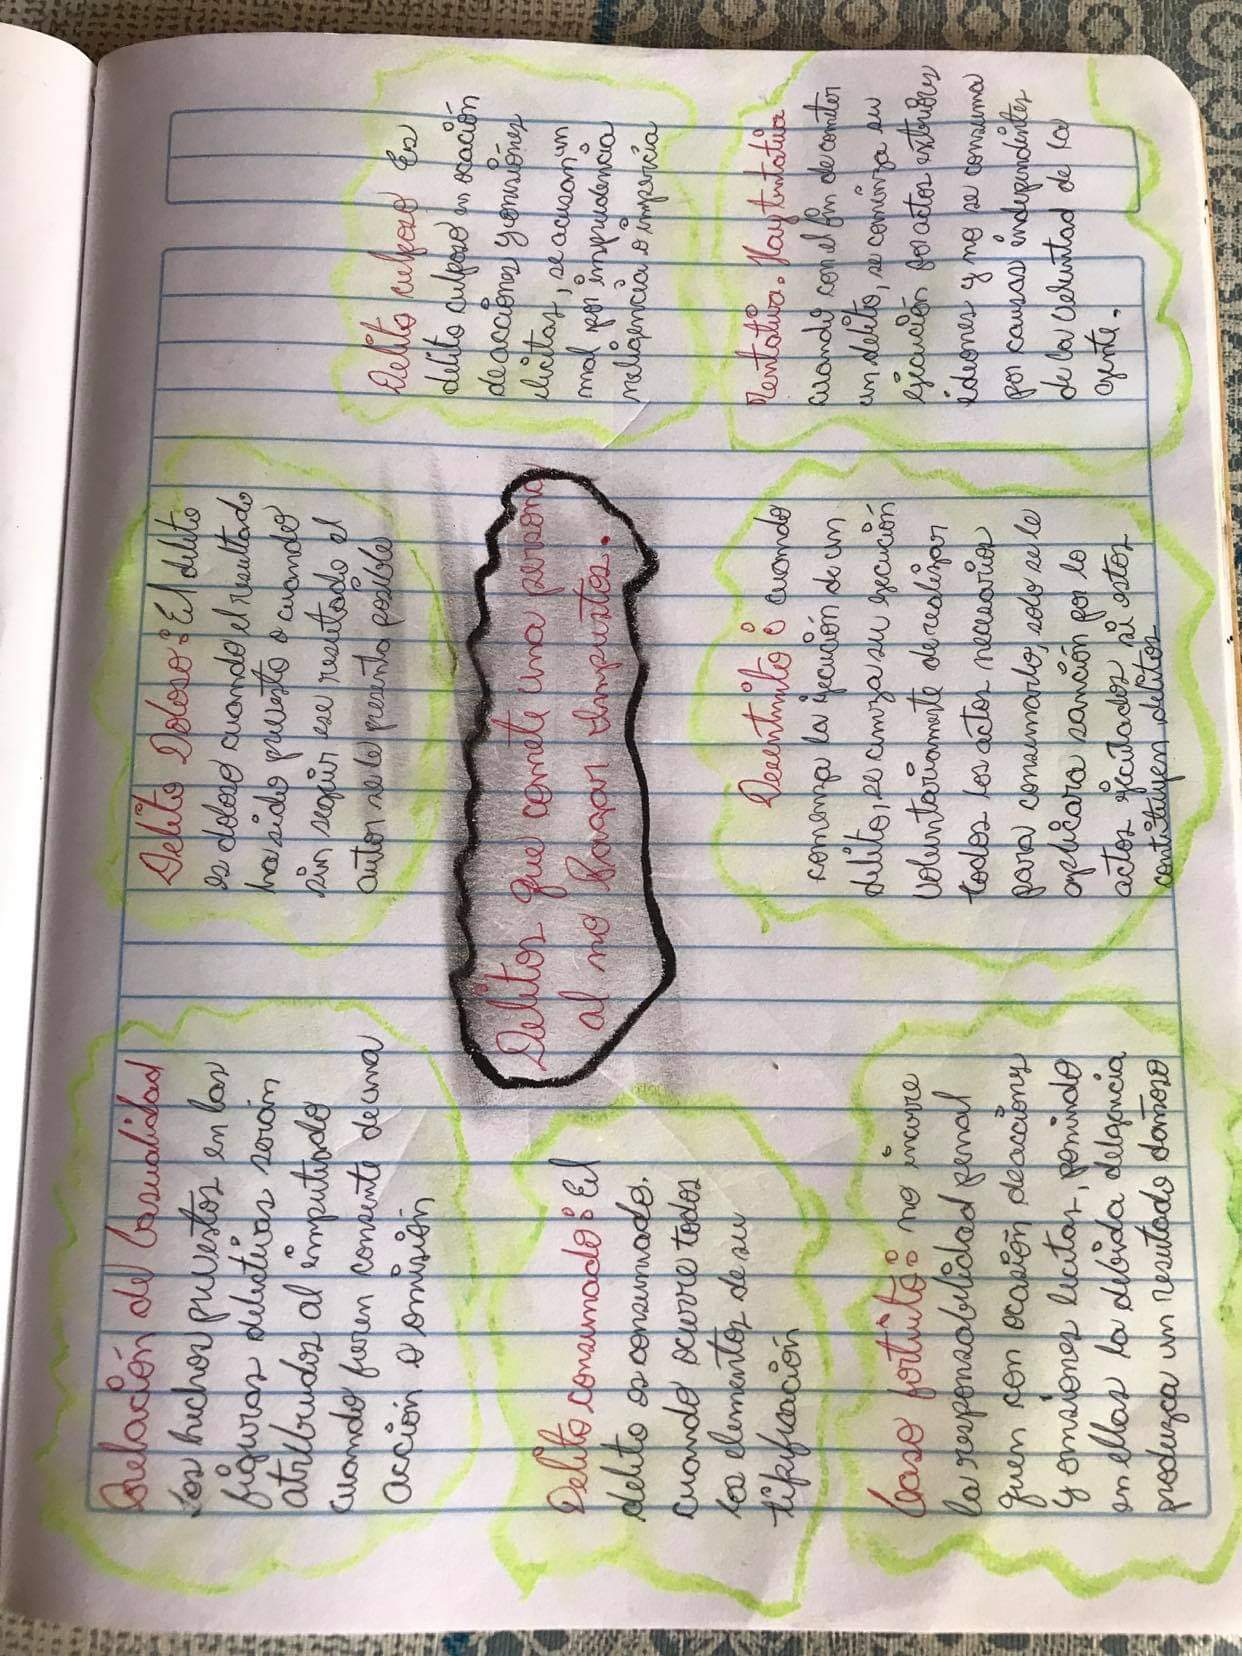 Relación de Casualidad
Los hechos puestos en las
figuras delectivas serán
atribuidos al imputado
cuando fueren consente de una
acción o omisión
Delito Doloso: El delito
es doloso cuando el resultado
ha sido puesto o cuando
sin seguir ese resutado el
autor se le presenta posible
Delito culposo Es
delito culposo en ocación
de acciones y omisiones
licitas, se causan un
mal por imprudencia
neligencia o impericia
Delitos que comete una persona
al no Pagar Impuestos.
Delito consumado: El
delito es consumado.
cuando ocurre todos
los elementos de su
tipificación
Caso fortuito: no incurre
la responsabilidad penal
quen con ocasión de accions
y omisiones licitas, poniendo
en ellas la debida deligencia
produzca un resutado dañoso
cuando
comenza la ejecución de un
delito, se
voluntariamente de realizar
todos los actos necesarios
para consumarlo, solo se le
aplicara sanción por lo
actos ejecutados si estos
contituyen delitos
Tentativa. Hay tentativa
cuando con el fin de cometer
un delito, se cominza su
ejecución por actos exteriores
ideones y no se consuma
por causas independientes
de la voluntad de la
gente.